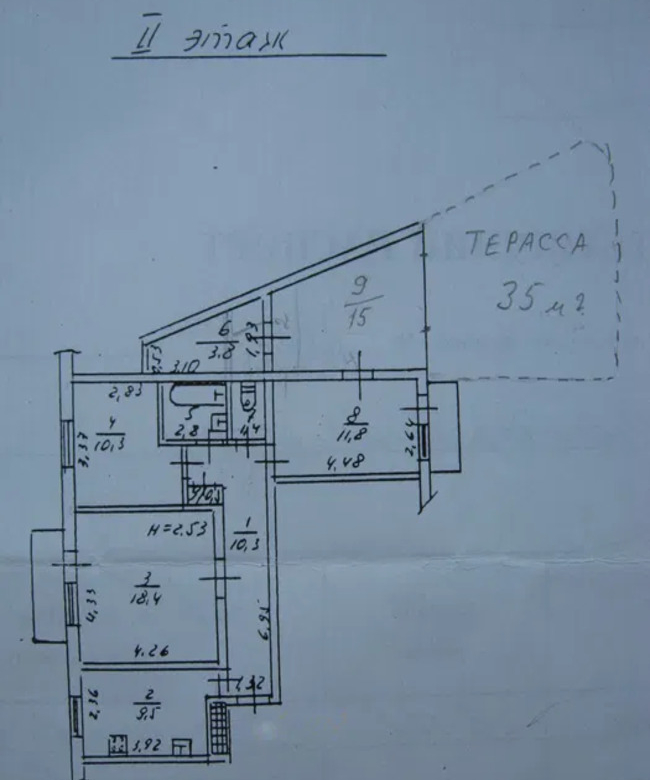 II этаж
ТЕРАССА
35 м²
9
15
6
3.8
1,93
3.10
2,83
4
10,3
3,37
5
2,8
1,4
8
11,8
2,64
4,48
H=2.53
1
10,3
3
18,4
4,33
6,95
4.26
1,32
2
9,5
2,36
3,92